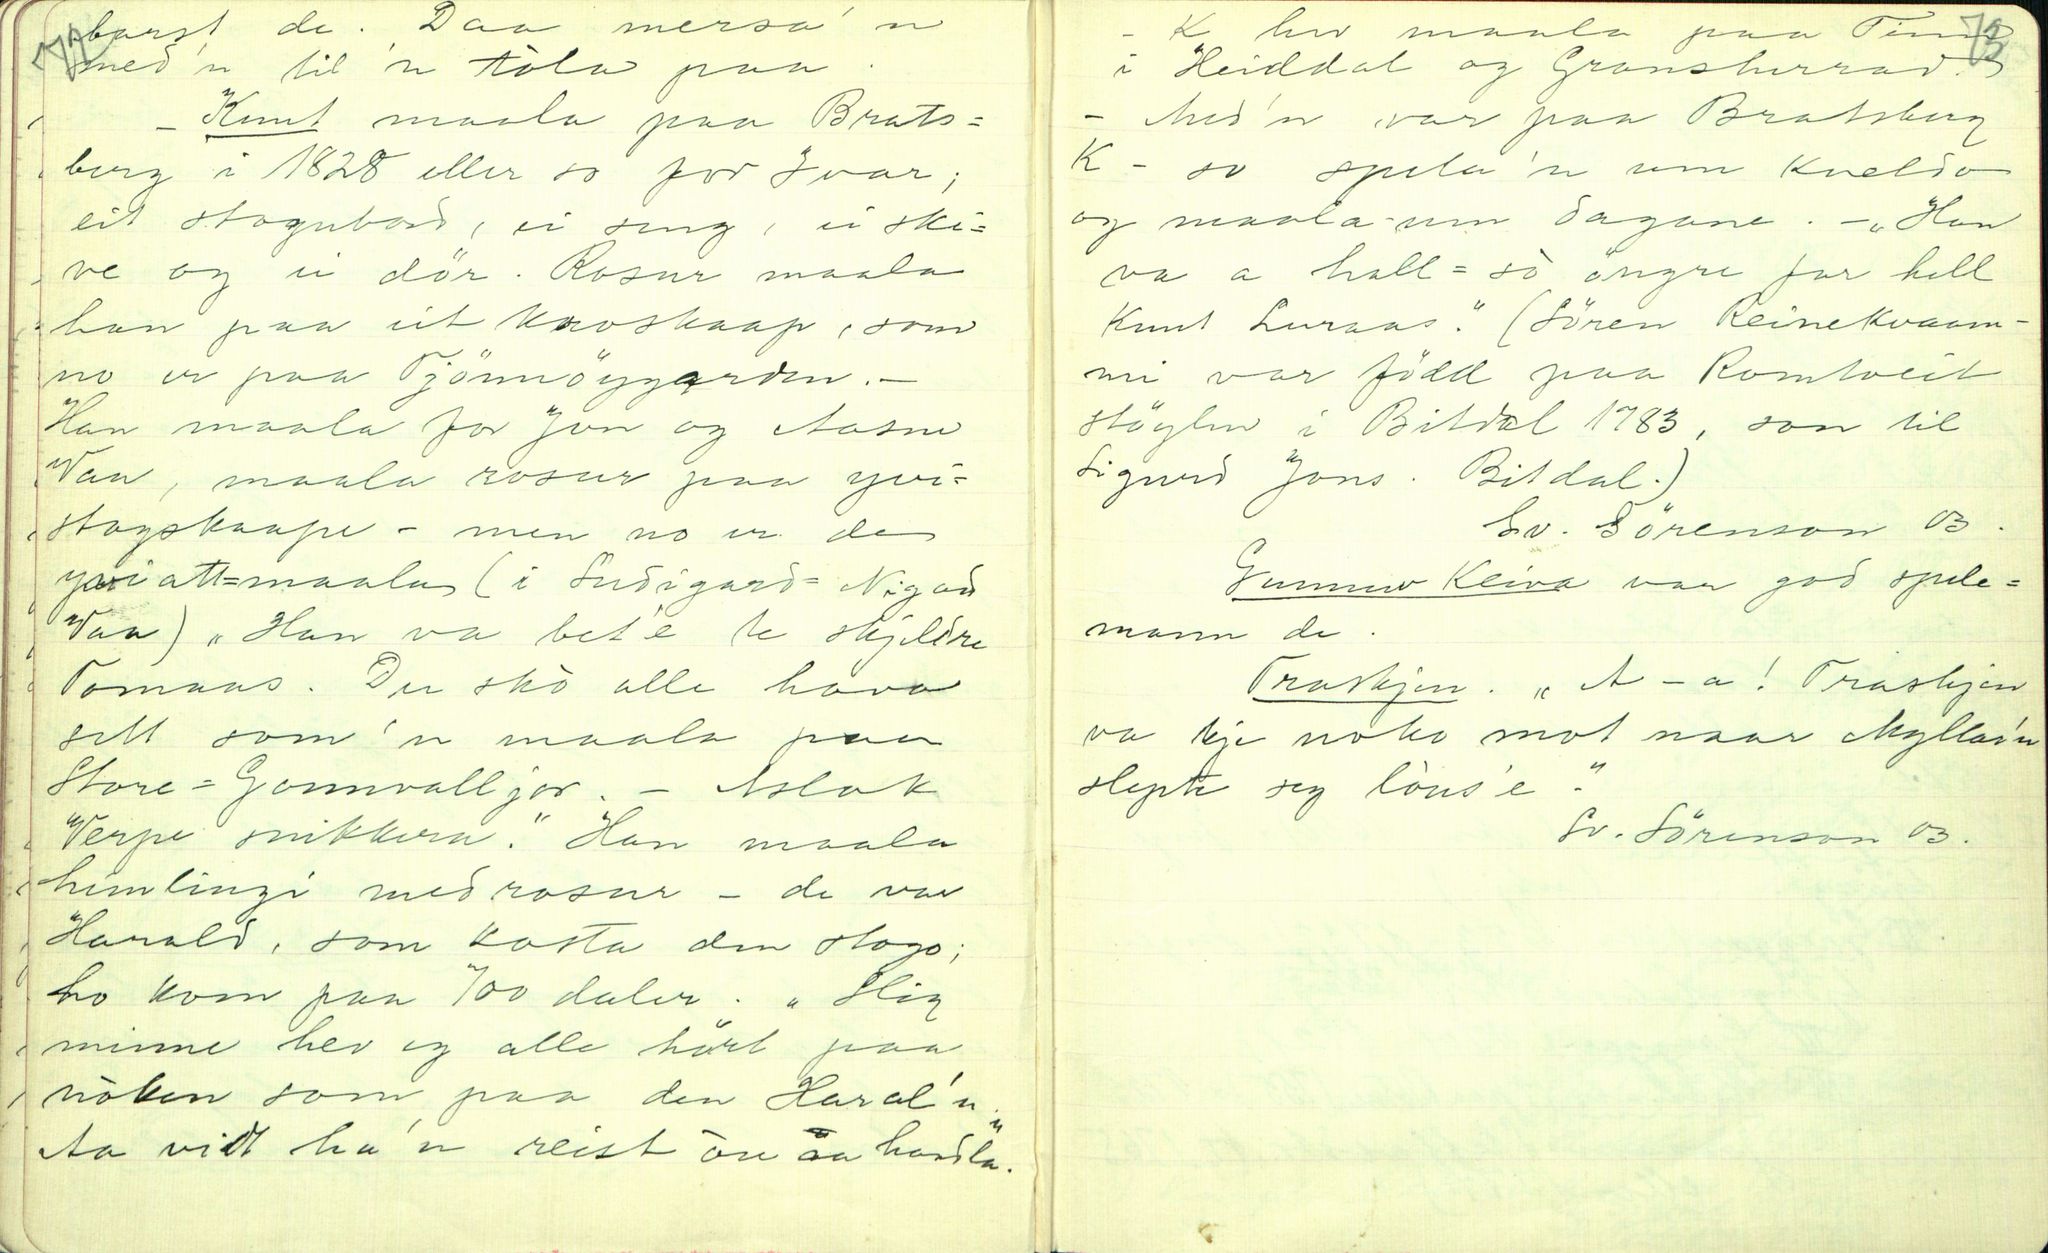 72
barst de. Daa mersa'n
med'n til'n tòla paa.
- Knut maala paa Brats=
berg i 1828 eller so for Ivar;
eit stogubord, ei seng, ei ski=
ve og ei dör. Rosur maala
han paa eit kroskaap, som
no er paa Tjönnöygarden. -
Han maala for Jon og Aasne
Vaa, maala rosur paa yvi=
stogskaape - men no er de
yviatt=maala (i Sudigard= Nigard
Vaa) „Han va bet'e te skjeldre
Tomaas. Du skò alle hava
sett som'n maala paa
Store=Gonnvalljor. - Aslak
Verpe snikkera." Han maala
himlingi med rosur - de var
Harald, som kosta den stogo;
ho kom paa 700 daler. „Slig
minne hev eg alle hört paa
nòken som paa den Haral'n."
Aa vidt ha'n reist òu aa handla.
73
- K hev maala paa Tinn
i Heiddal og Gransherrad.
- Med'n var paa Bratsberg
K - so spela'n um kveldo
og maala um dagane. - „Han
va a hall=sò òngre far hell
Knut Luraas." (Sören Reinekvaam-
mi var född paa Romtveit
stöylen i Bitdal 1783, son til
Sigurd Jons. Bitdal.)
Sv. Sörenson 03.
Gunnuv Keiva var god spele=
mann de.
Traskjen. „A - a! Traskjen
va kje noko mot naar Myllar'n
slepte seg lòus'e."
Sv. Sörenson 03.